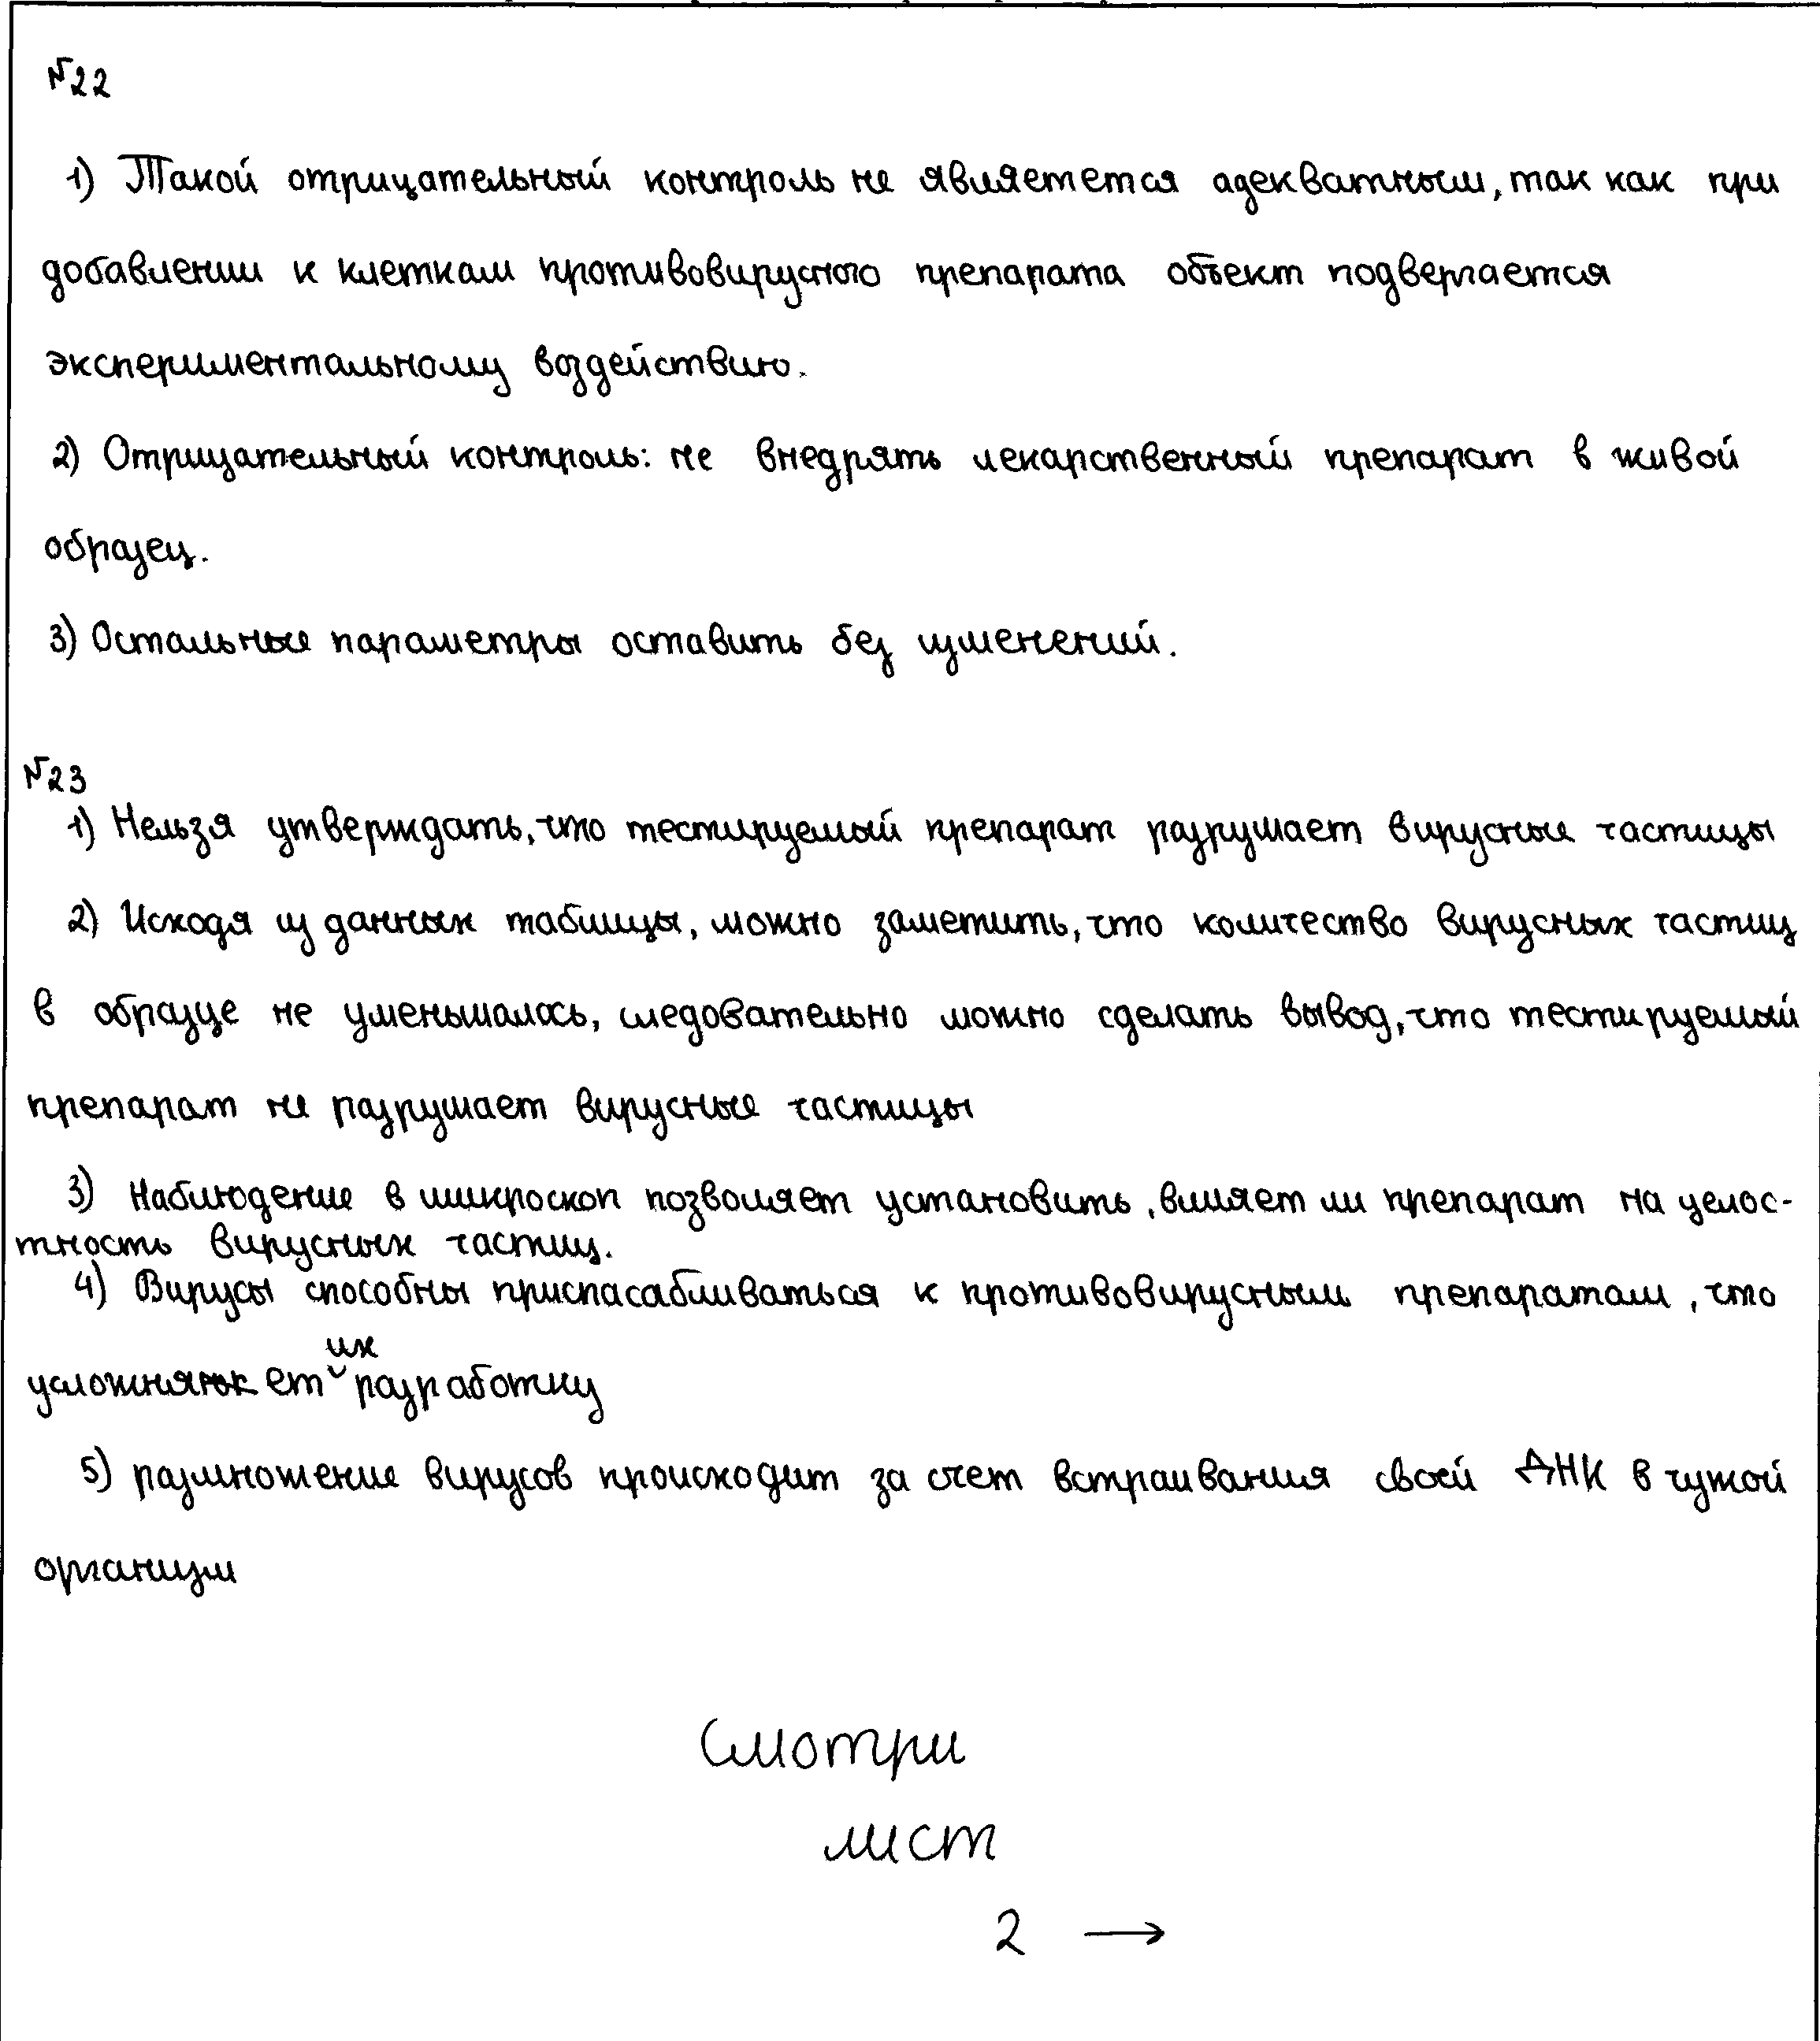 №22
1) Такой отрицательный контроль не являетется адекватным, так как при
добавлении к клеткам противовирусного препарата объект подвергается
экспериментальному воздействию.
2) Отрицательный контроль: не внедрять лекарственный препарат в живой
образец.
3) Остальные параметры оставить без изменений.
№23
1) Нельзя утверждать, что тестируемый препарат разрушает вирусные частицы
2) Исходя из данных таблицы, можно заметить, что количество вирусных частиц
в образце не уменьшалось, следовательно можно сделать вывод, что тестируемый
препарат не разрушает вирусные частицы
3) Наблюдение в микроскоп позволяет установить, влияет ли препарат на целос-
тность вирусных частиц.
4) Вирусы способны приспасабливаться к противовирусным препаратам, что
усложняет их разработку
5) размножение вирусов происходит за счет встраивания своей ДНК в чужой
организм
Смотри
лист
2 →